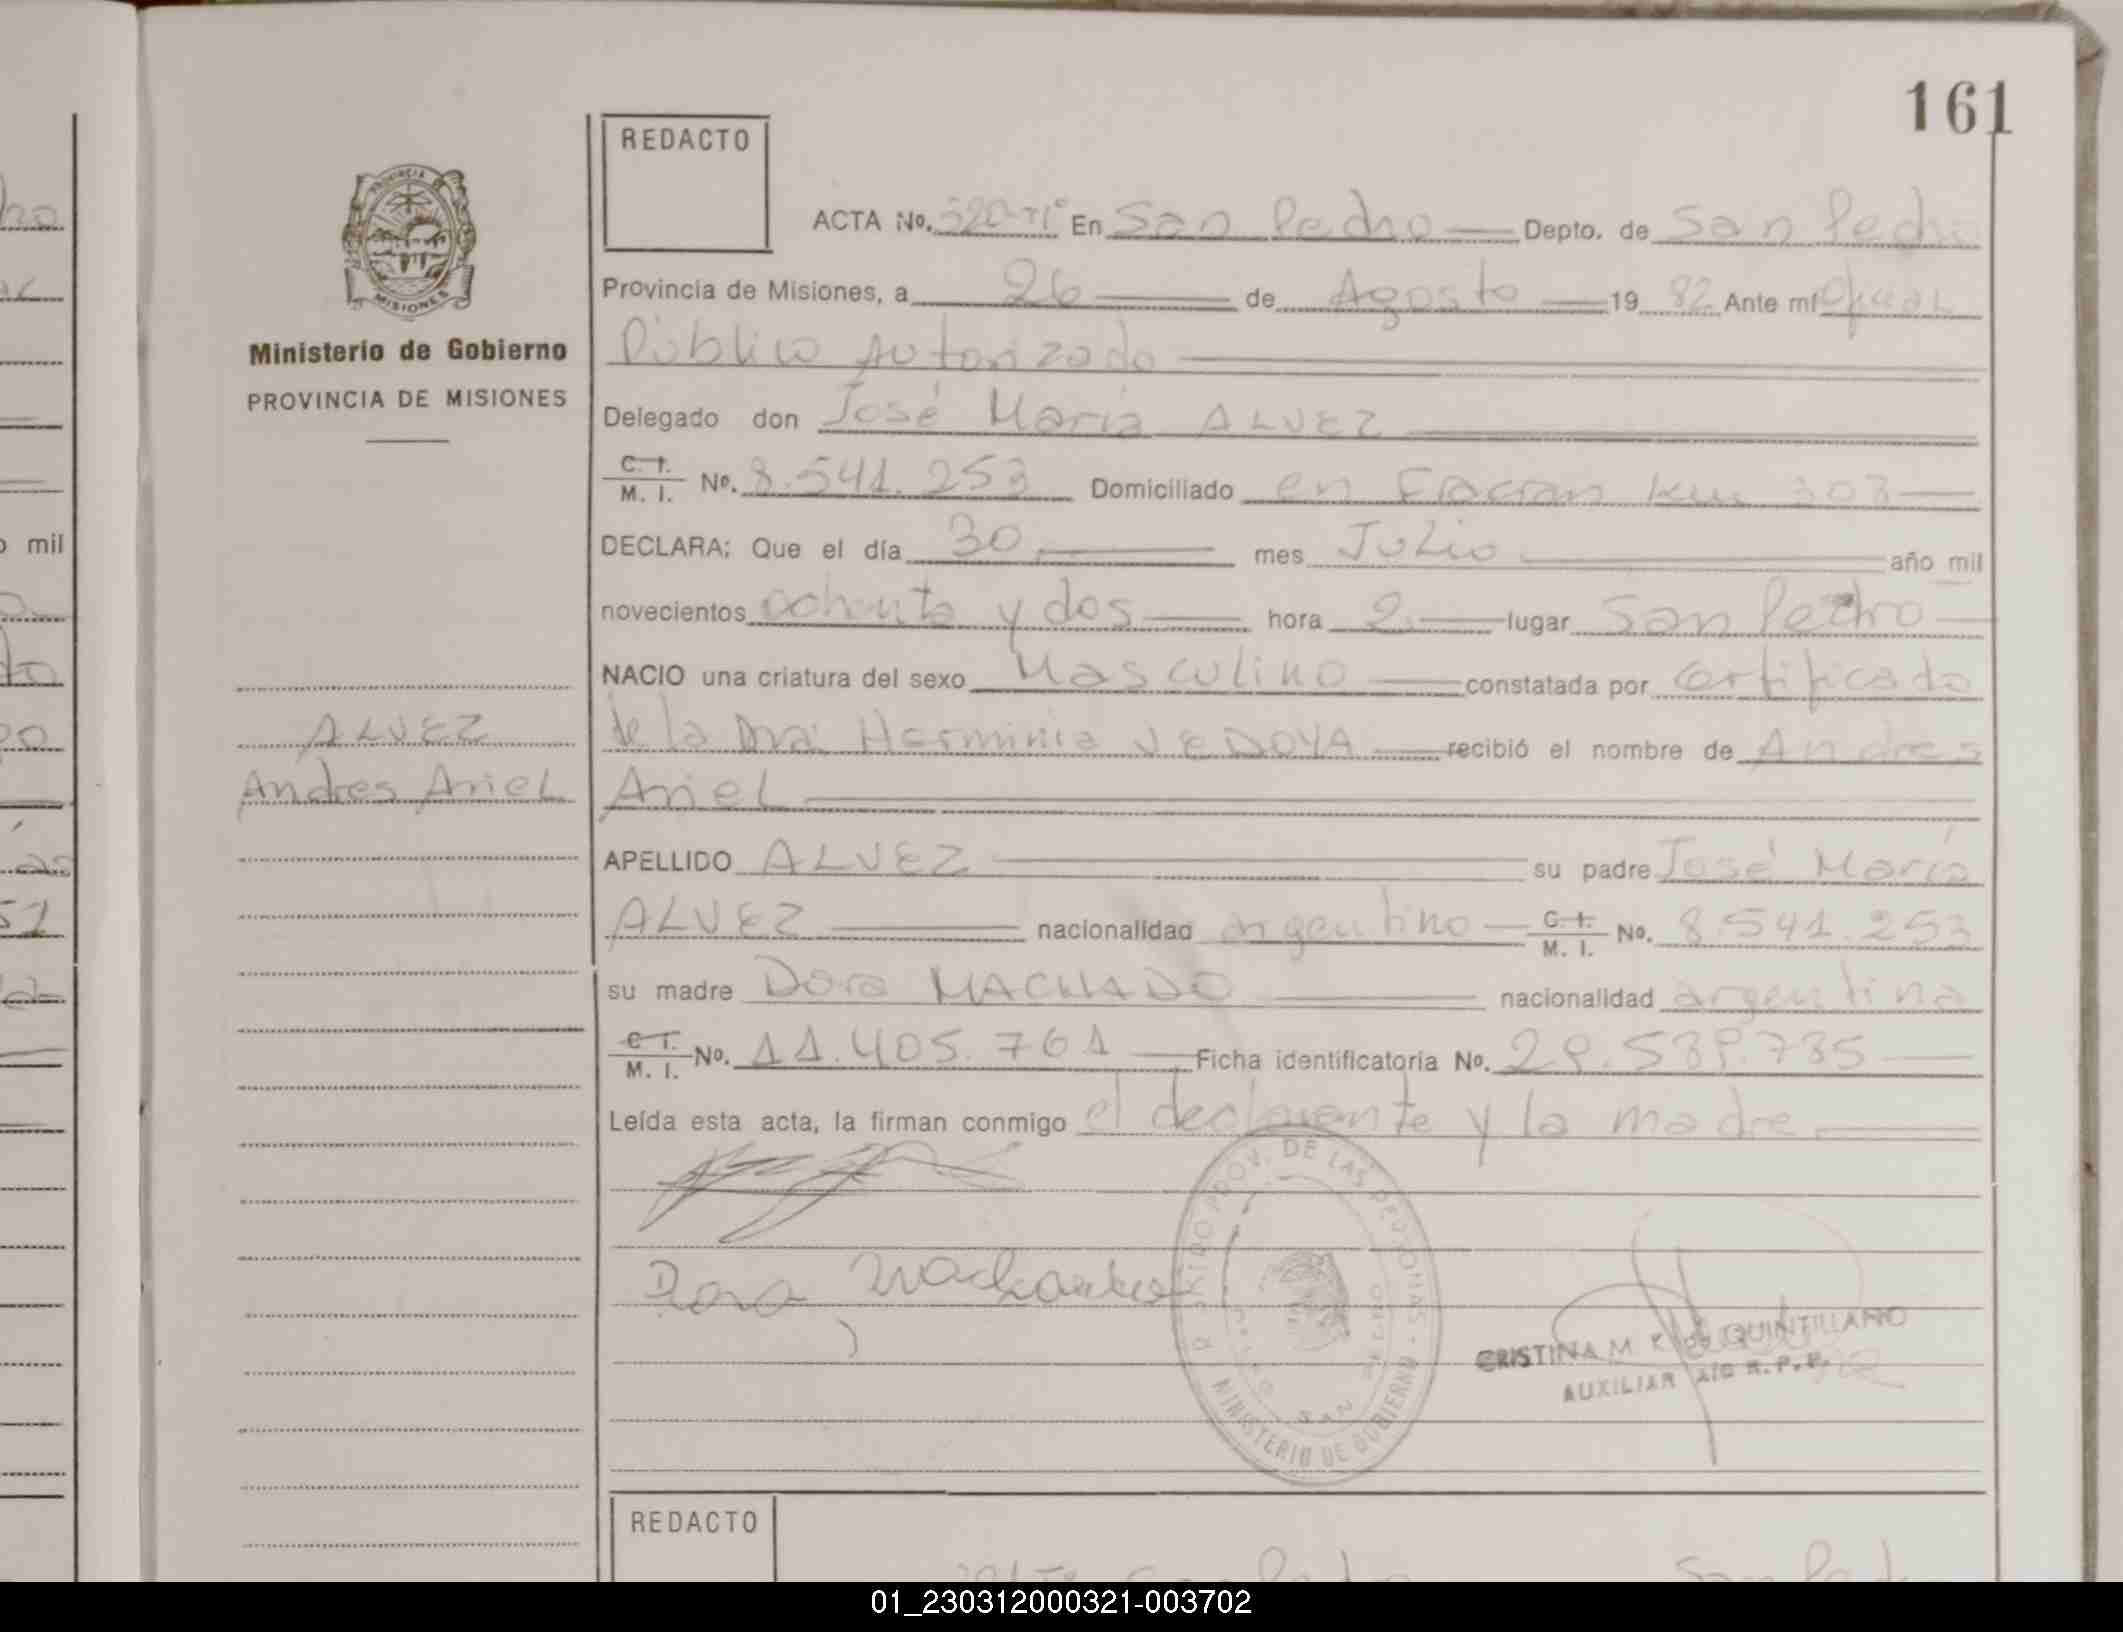 161
REDACTO
PROVINCIA
MISIONES
Ministerio de Gobierno
PROVINCIA DE MISIONES
ACTA No. 320-Tº En San Pedro Depto. de San Pedro
Provincia de Misiones, a 26 de Agosto 19 82 Ante mí Oficial
Público Autorizado
Delegado don José María ALVEZ
C. I.
M. I. No. 8.541.253 Domiciliado en Fracran Km 303
DECLARA: Que el día 30 mes Julio año mil
novecientos ochenta y dos hora 2. lugar San Pedro
NACIO una criatura del sexo Masculino constatada por certificado
de la Dra. Herminia VEDOYA recibió el nombre de Andres
Ariel
ALVEZ
Andres Ariel
APELLIDO ALVEZ su padre José María
ALVEZ nacionalidad argentino C. I.
M. I. No. 8.541.253
su madre Dora MACHADO nacionalidad argentina
C. I.
M. I. No. 11.405.761 Ficha identificatoria No. 29.539.735
Leída esta acta, la firman conmigo el declarante y la madre
Dora Machado
PROV. DE LAS PERSONAS
SAN PEDRO
MINISTERIO DE GOBIERNO
CRISTINA M. K. de QUINTILLANO
AUXILIAR A/C R.P.P.
REDACTO
San Pedro San Pedro
o mil
01_230312000321-003702